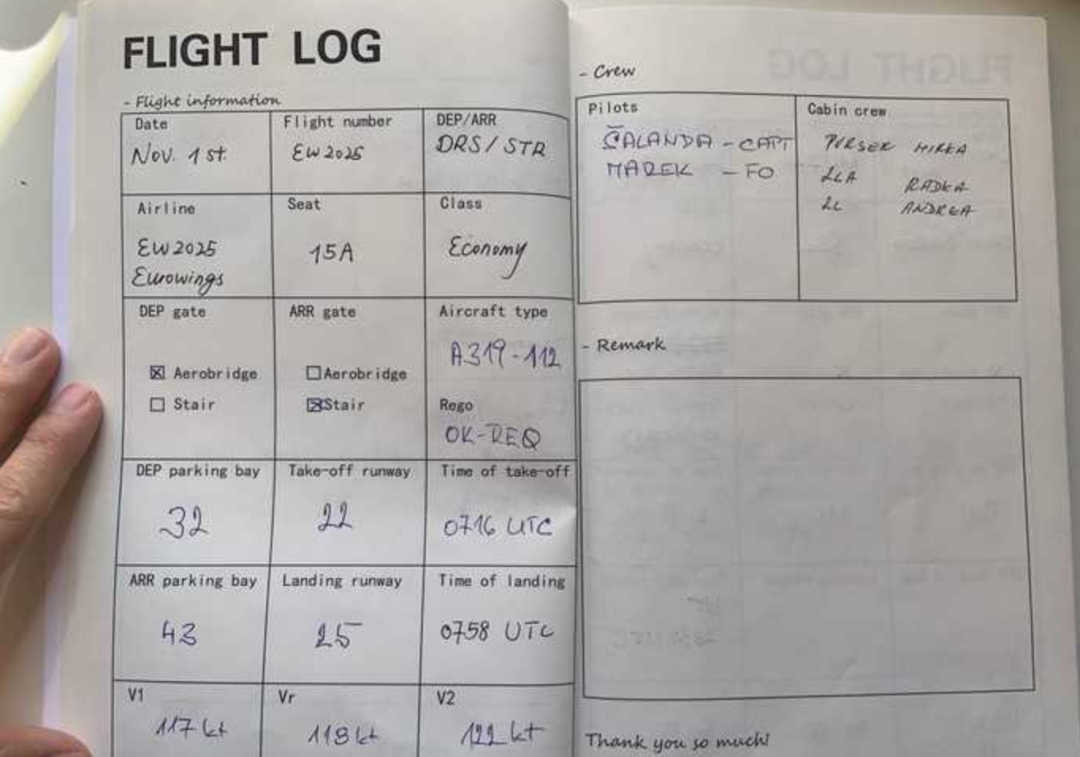 FLIGHT LOG
- Flight information
Date
Nov. 1 st.
Flight number
EW2025
DEP/ARR
DRS / STR
Airline
EW2025
Eurowings
Seat
15A
Class
Economy
DEP gate
☒ Aerobridge
☐ Stair
ARR gate
☐ Aerobridge
☒ Stair
Aircraft type
A319-112
Rego
OK-REQ
DEP parking bay
32
Take-off runway
22
Time of take-off
0716 UTC
ARR parking bay
43
Landing runway
25
Time of landing
0758 UTC
V1
117 kt
Vr
118 kt
V2
122 kt
- Crew
Pilots
ČALANDA - CAPT
MAREK - FO
Cabin crew
PURSER MIRKA
RADKA
ANDREA
- Remark
Thank you so much!